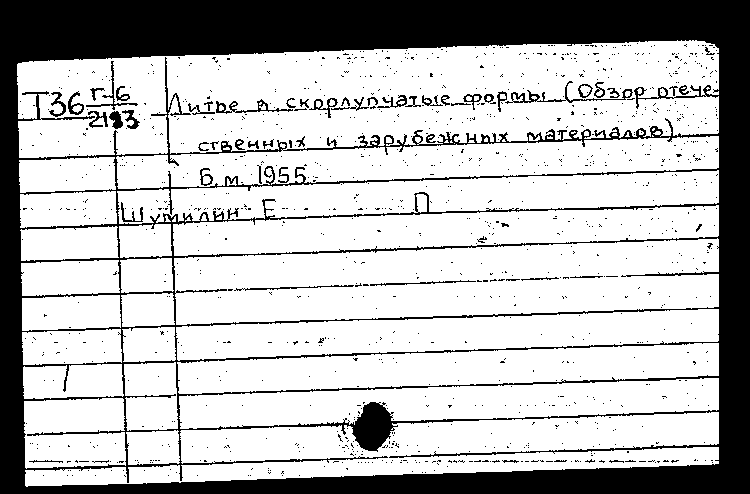 Т36 Г-6
2193
Литье в скорлупчатые формы (Обзор отече-
ственных и зарубежных материалов).
Б.м., 1955.
Шумилин, Е П
1